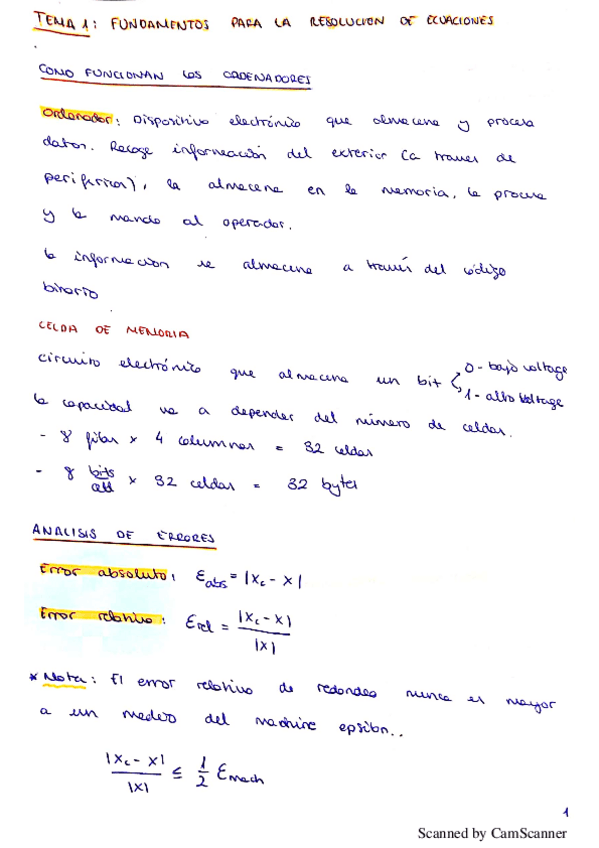 TEMA 1: FUNDAMENTOS PARA LA RESOLUCION DE ECUACIONES
COMO FUNCIONAN LOS ORDENADORES
Ordenador: Dispositivo electrónico que almacena y procesa
datos. Recoge información del exterior (a traves de
perifericos), la almacena en la memoria, la procesa
y la manda al operador.
la información se almacena a través del código
binario
CELDA DE MEMORIA
circuito electrónico que almacena un bit
0 - bajo voltage
1 - alto voltage
la capacidad va a depender del número de celdas.
- 8 filas x 4 columnas = 32 celdas
- 8 bits/celd x 32 celdas = 32 bytes
ANALISIS DE ERRORES
Error absoluto: Ɛabs = |Xc - X|
Error relativo: Ɛrel = |Xc - X| / |X|
* Nota: El error relativo de redondeo nunca es mayor
a un medio del machine epsilon..
|Xc - X| / |X| ≤ 1/2 Ɛmach
1
Scanned by CamScanner